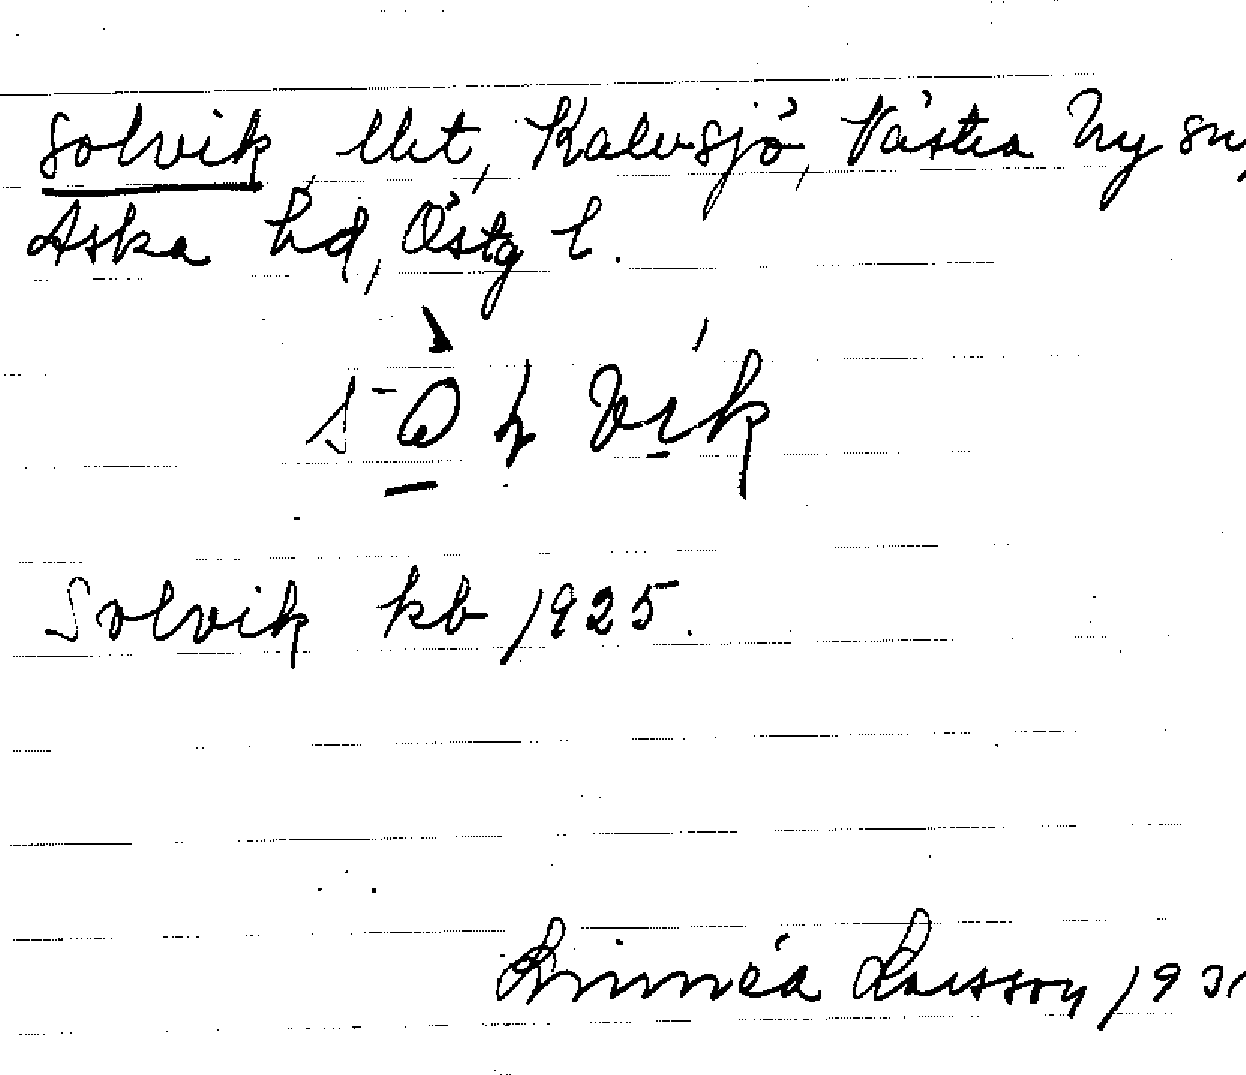 Solvik, lht, Kalvsjö, Västra Ny sn,
Aska hd, Östg l.
Solvik kb 1925.
Linnéa Larsson 193